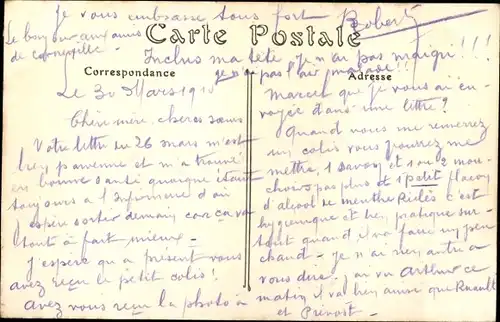 Je vous embrasse tous fort Robert
Le bonjour aux amis
de
Inclus ma tête, je n'ai pas maigri!!!
je n'ai pas l'air malade!!
Carte Postale
Correspondance
Adresse
Le 30 Mars 1910
Chère mère, chères sœurs
Votre lettre du 26 mars m'est
bien parvenue et m'a trouvé
en bonne santé quoique étant
toujours à l'Infirmerie d'où
espère sortir demain car ça va
tout à fait mieux.
J'espère qu'à présent vous
avez reçu le petit colis!
avez vous reçu la photo à
Marcel que je vous ai en-
voyée dans une lettre?
Quand vous me renverrez
un colis vous pourrez me
mettre, 1 savon et 1 ou 2 mou-
choirs pas plus et 1 petit flacon
d'alcool de menthe Ricqlès c'est
hygiénique et bien pratique sur-
tout quand il va faire un peu
chaud. Je n'ai rien autre à
vous dire, j'ai vu Arthur ce
matin il va bien ainsi que
et Prévost.